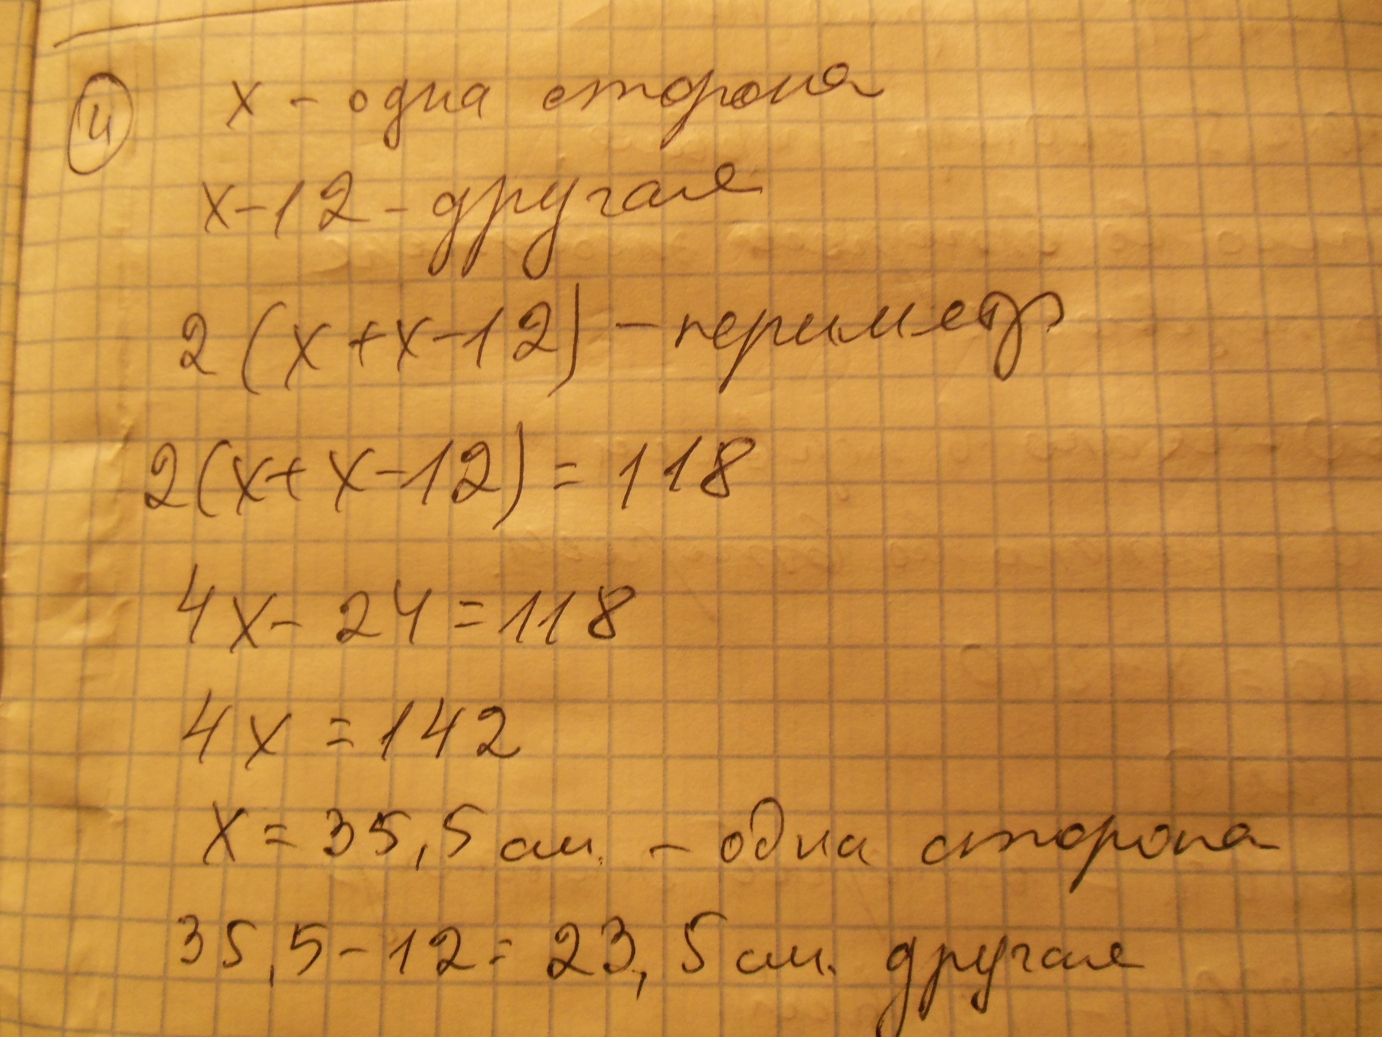 4 x - одна сторона
x-12 - другая
2(x+x-12) - периметр
2(x+x-12)=118
4x-24=118
4x=142
x=35,5 см. - одна сторона
35,5-12=23,5 см. другая